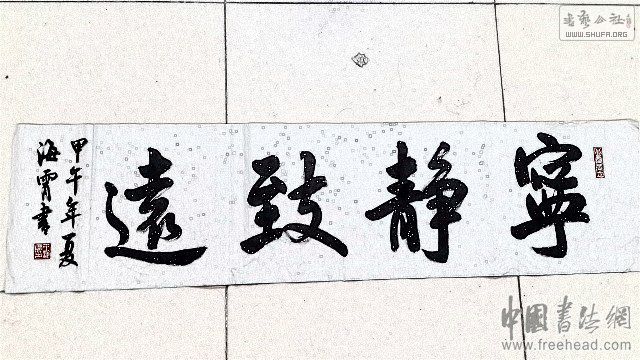 寧靜致遠
甲午年夏
海霄書
书艺公社
WWW.SHUFA.ORG
中國书法網
www.freehead.com